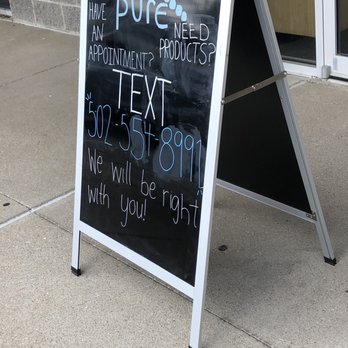 pure
HAVE NEED
AN PRODUCTS?
APPOINTMENT?
TEXT
502-554-8991
We will be right
with you!